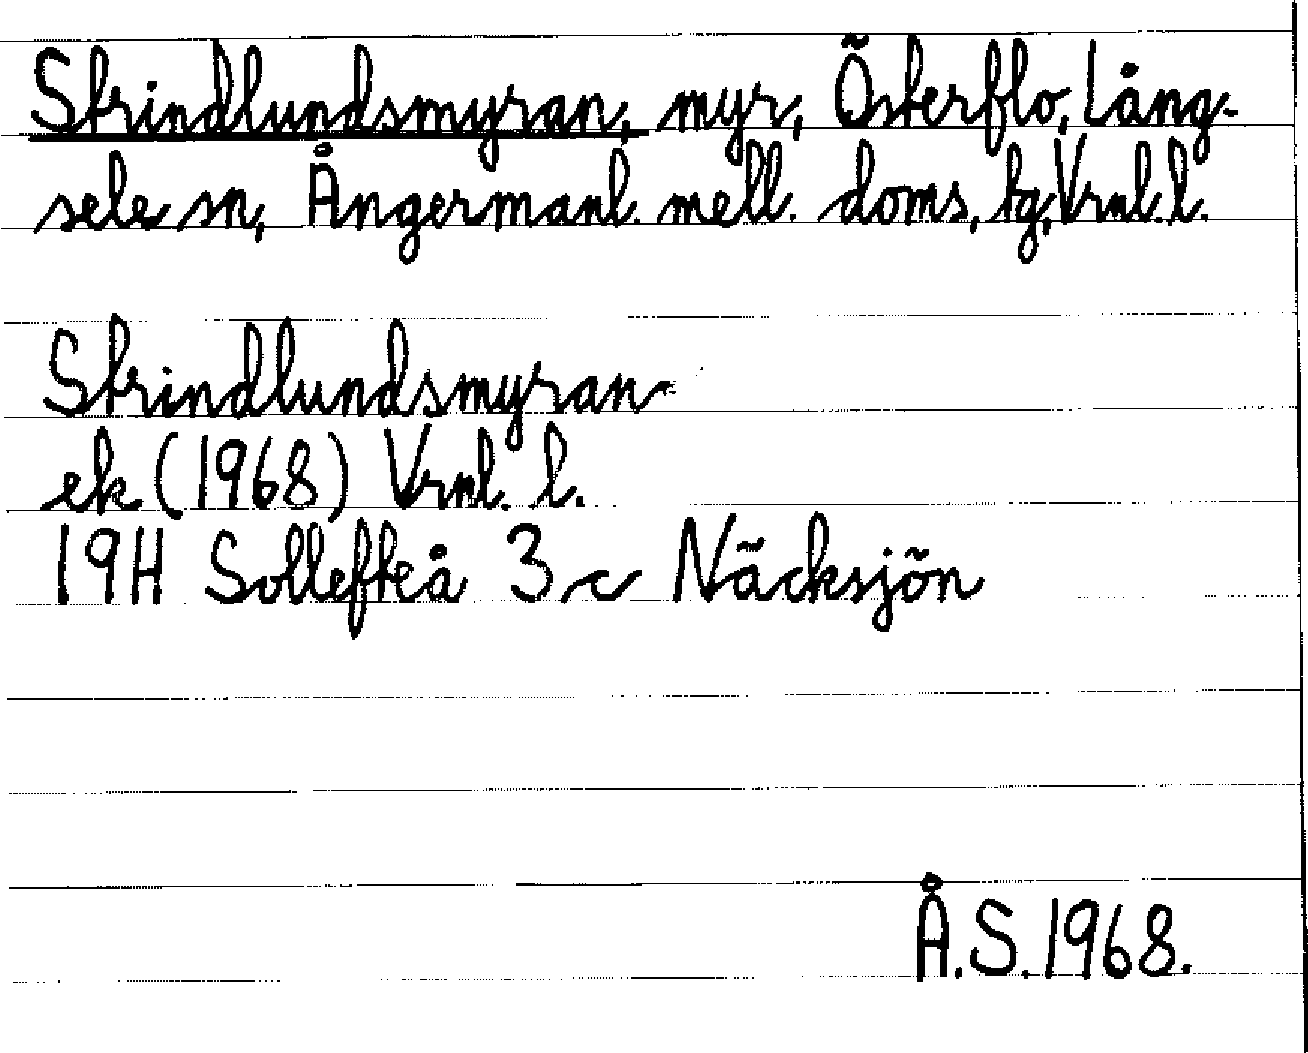 Strindlundsmyran, myr, Österflo, Lång-
sele sn, Ångermanl. mell. doms, tg, Vrnl. l.
Strindlundsmyran
ek (1968) Vrnl. l.
19H Sollefteå 3 c Näcksjön
Å.S. 1968.